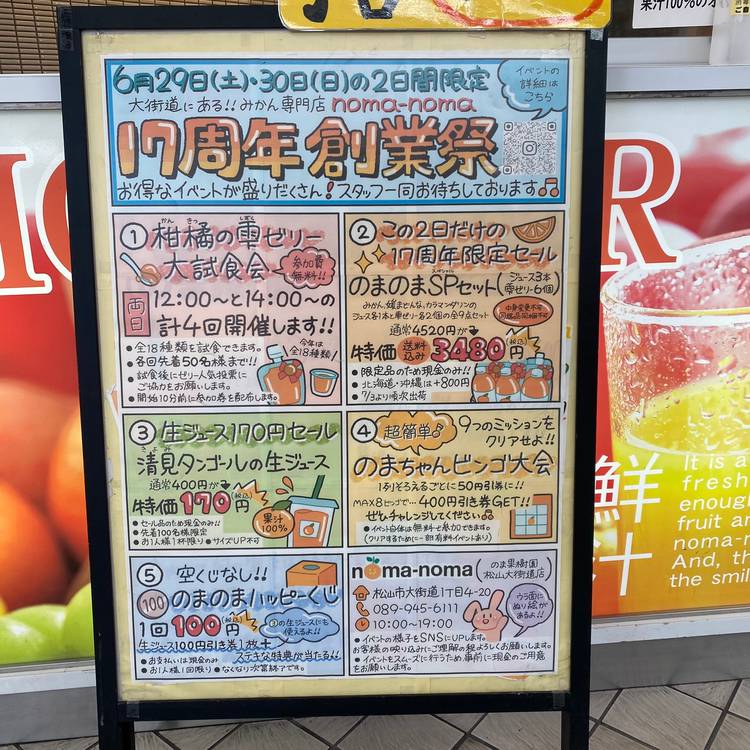 果汁100%の
6月29日(土)・30日(日)の2日間限定
大街道にある!!みかん専門店 noma-noma
17周年創業祭
お得なイベントが盛りだくさん!スタッフ一同お待ちしております♫
イベントの
詳細は
こちら
① 柑橘の雫ゼリー
かん きつ しずく
大試食会
参加費
無料!!
両日
12:00〜と14:00〜の
計4回開催します!!
●全18種類を試食できます。
●各回先着50名様まで!!
●試食後にゼリー人気投票に
ご協力をお願いします。
●開始10分前に参加券を配布します。
今年は
全18種類!
② この2日だけの
17周年限定セール
のまのまSPセット(ジュース3本
雫ゼリー6個)
スペシャル
みかん、媛まどんな、カラマンダリンの
ジュース各1本と雫ゼリー各2個の全9点セット
中身変更不可
同梱品同梱不可
通常4520円が
特価 送料込み 3480円(税込)
●限定品のため現金のみ!!
●北海道・沖縄は+800円
●7/3より順次出荷
③ 生ジュース170円セール
清見タンゴールの生ジュース
きよみ
通常400円が
特価170円(税込)
●セール品のため現金のみ!!
●先着100名様限定
●お1人様1杯限り ●サイズUP不可
果汁
100%
④ 超簡単♪ 9つのミッションを
クリアせよ!!
のまちゃんビンゴ大会
1列そろえるごとに50円引券に!!
MAX8ビンゴで…400円引き券GET!!
ぜひチャレンジしてください♫
●イベント自体は無料で参加できます。
(クリアするために一部有料イベントあり)
⑤ 空くじなし!!
100 のまのまハッピーくじ
1回100円(税込)
③の生ジュースにも
使えるよ!!
生ジュース100円引き券1枚+
ステキな特典が当たる!!
●お支払いは現金のみ
●お1人様1回限り ●なくなり次第終了です。
noma-noma (のま果樹園
松山大街道店)
松山市大街道1丁目4-20
089-945-6111
10:00〜19:00
ウラ面に
ぬり絵が
あるよ!!
●イベントの様子をSNSにUPします。
お客様の映り込みにご理解の程よろしくお願いします。
●イベントをスムーズに行うため、事前に現金のご用意
をお願いします。
R
鮮
汁
It is a
fresh
enough
fruit a
noma-n
And, th
the smil